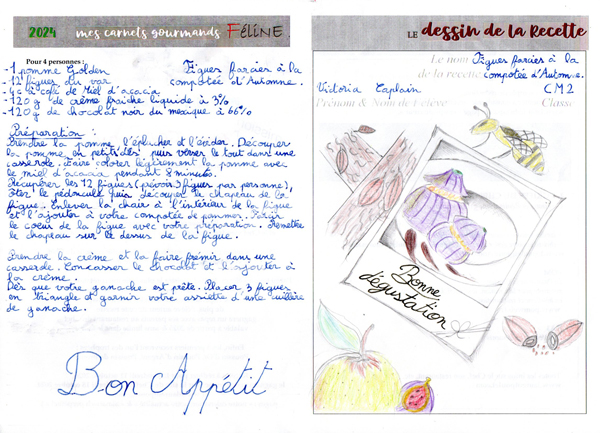 2024 mes carnets gourmands FÉLINE.
Pour 4 personnes :
- 1 pomme Golden
Figues farcies à la
compotée d'Automne.
- 12 figues du var
- 4 c à café de Miel d'acacia
- 120 g de crème fraîche liquide à 3%
- 120 g de chocolat noir du mexique à 66%
Préparation :
Prendre la pomme, l'éplucher et l'épider. Découper
la pomme en petits dés puis verser le tout dans une
casserole. Faire colorer légèrement la pomme avec
le miel d'acacia pendant 2 minutes.
Récupérer les 12 figues (prévoir 3 figues par personne),
ôter le pédoncule puis découper le chapeau de la
figue. Enlever la chair à l'intérieur de la figue
et l'ajouter à votre compotée de pommes. Farcir
le coeur de la figue avec votre préparation. Remettre
le chapeau sur le dessus de la figue.
Prendre la crème et la faire frémir dans une
casserole. Concasser le chocolat et l'ajouter à
la crème.
Dès que votre ganache est prête. Placer 3 figues
en triangle et garnir votre assiette d'une cuillère
de ganache.
Bon Appétit
LE dessin de la Recette
Le nom Figues farcies à la
de la recette compotée d'Automne.
Victoria Caplain CM2
Prénom & Nom de l'élève Classe
Bonne
dégustation